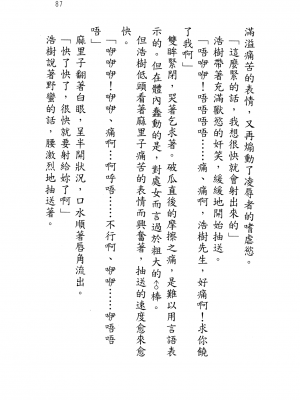 87
滿溢痛苦的表情，又再煽動了凌辱者的嗜虐慾。
「這麼緊的話，我想很快就會射出來的」
浩樹帶著充滿獸慾的奸笑，緩緩地開始抽送。
「唔咿咿！唔唔唔唔……痛、痛啊，浩樹先生，好痛啊！求你饒
了我啊」
雙眸緊閉，哭著乞求著。破瓜直後的摩擦之痛，是難以用言語表
示的。但在體內蠢動的是，對處女而言過於粗大的♂棒。
但浩樹低頭看著麻里子痛苦的表情而興奮著，抽送的速度愈來愈
快。
「咿咿咿！咿咿……、痛啊…啊呼唔……不行啊、咿咿……咿唔唔
唔」
麻里子翻著白眼，呈半開狀況，口水順著唇角流出。
「快了快了，很快就要射給妳了啊」
浩樹說著野蠻的話，腰激烈地抽送著。